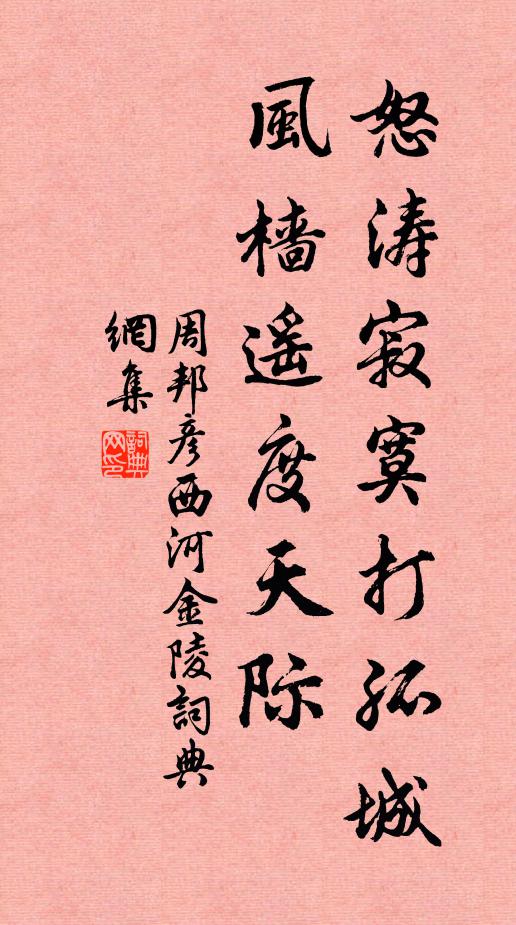 怒濤寂寞打孤城
風檣遥度天際
周邦彦西河金陵詞典
網集
詞典網印